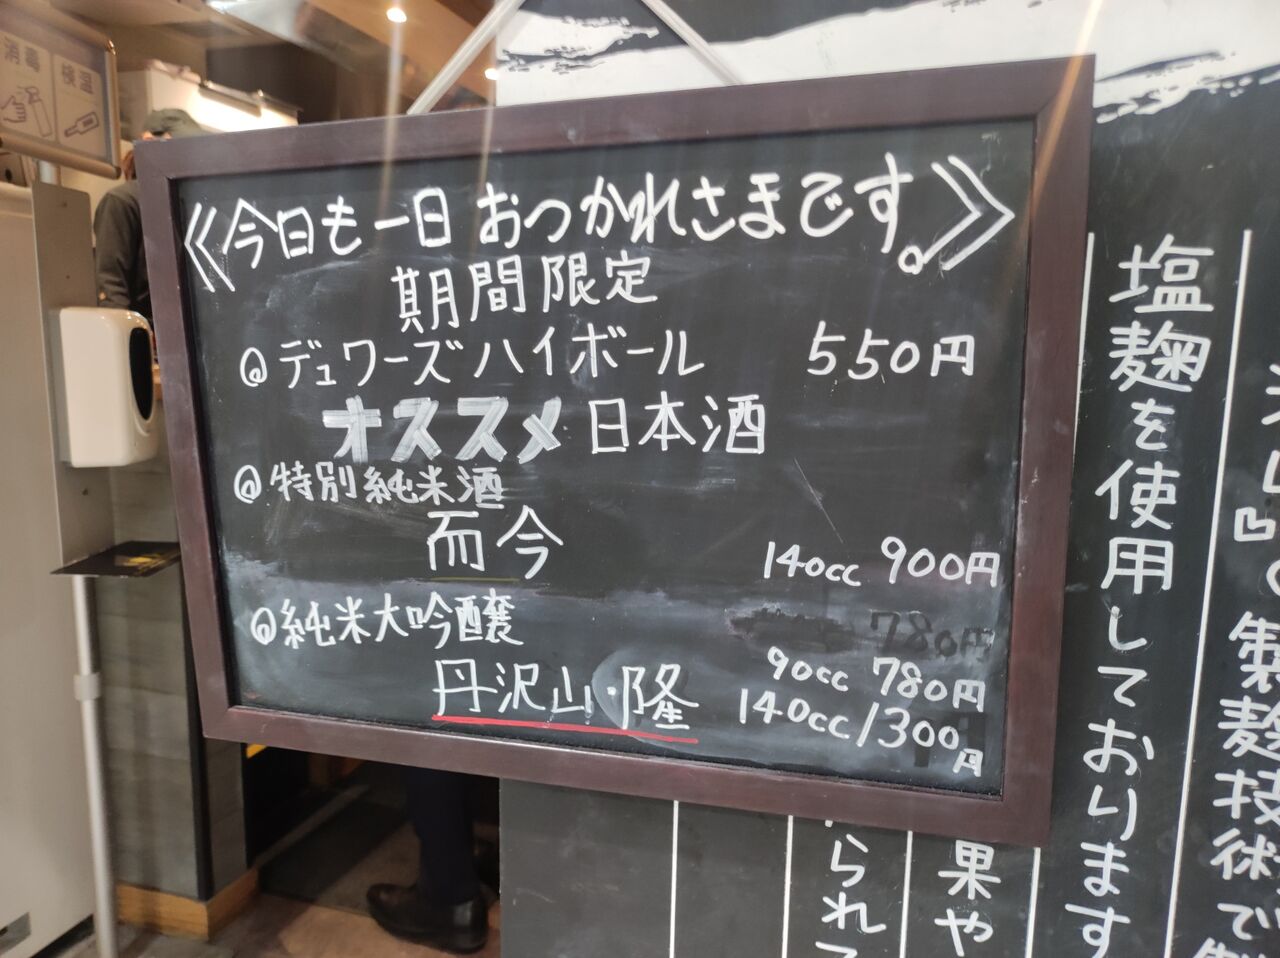 消毒
検温
《今日も一日 おつかれさまです。》
期間限定
◎デュワーズハイボール 550円
オススメ日本酒
◎特別純米酒
而今 140cc 900円
◎純米大吟醸
780円
丹沢山・隆 90cc 780円
140cc 1300円
塩麹を使用しております
製麹技術で
果や
られて